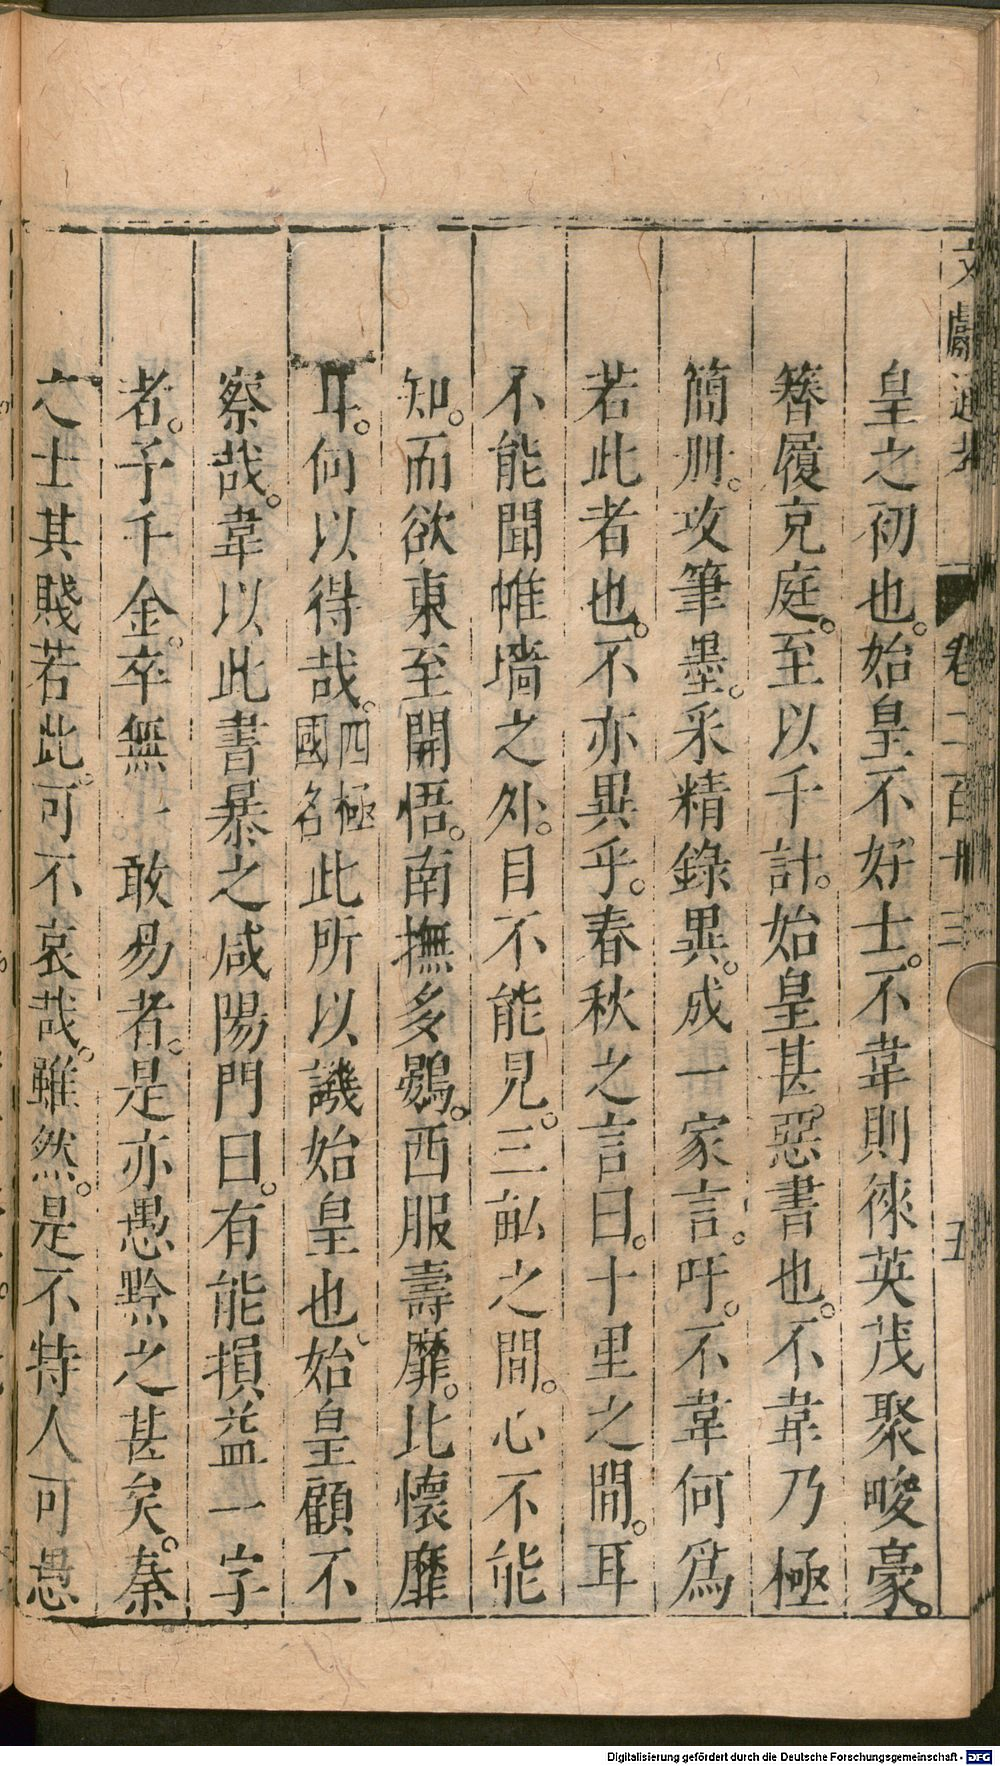 文獻通考 卷二百十三 五
皇之初也。始皇不好士。不韋則徠英茂聚畯豪。
簪履充庭。至以千計。始皇甚惡書也。不韋乃極
簡册。攻筆墨。采精錄異。成一家言。吁。不韋何爲
若此者也。不亦異乎。春秋之言曰。十里之間。耳
不能聞帷墻之外。目不能見。三畝之間。心不能
知。而欲東至開悟。南撫多鷃。西服壽靡。北懷靡
耳。何以得哉。四極國名此所以譏始皇也。始皇顧不
察哉。韋以此書暴之咸陽門曰。有能損益一字
者。予千金。卒無一敢易者。是亦愚黔之甚矣。秦
之士其賤若此。可不哀哉。雖然。是不特人可愚
Digitalisierung gefördert durch die Deutsche Forschungsgemeinschaft - DFG